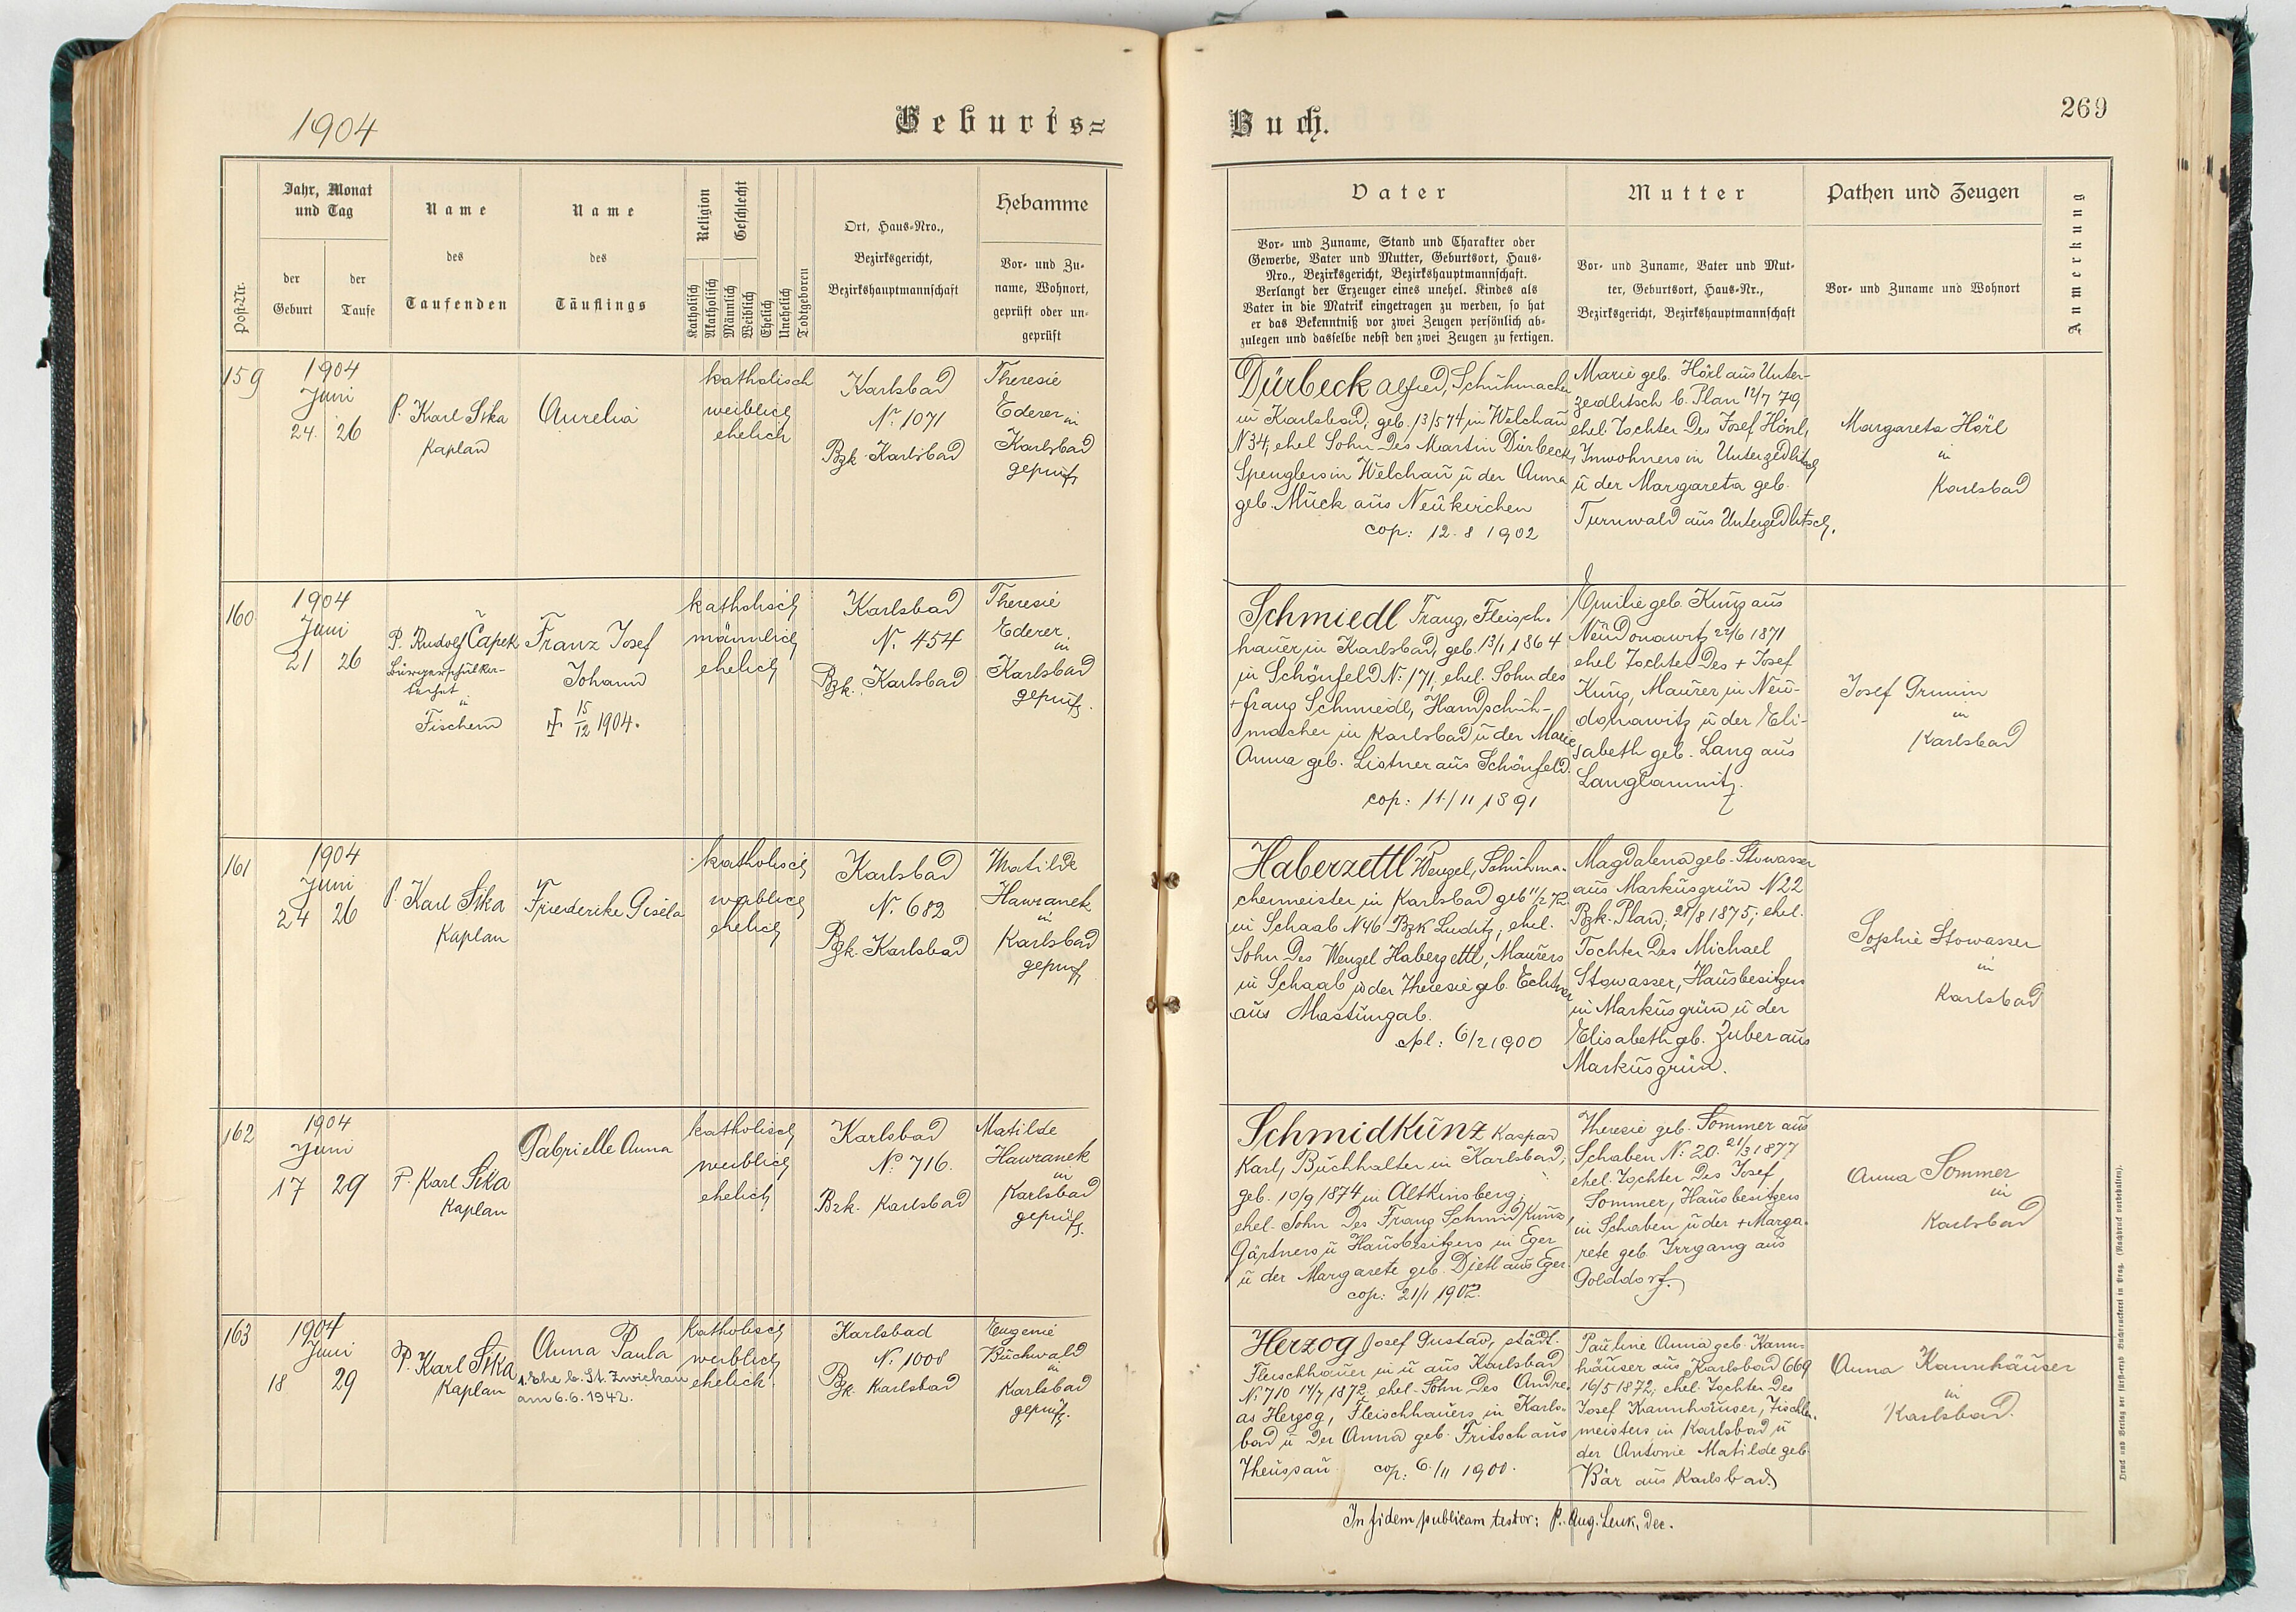 1904
Geburts=
Buch.
269
Post-Nr.
Jahr, Monat
und Tag
der
Geburt
der
Taufe
Name
des
Taufenden
Name
des
Täuflings
Religion
Geschlecht
Katholisch
Akatholisch
Männlich
Weiblich
Ehelich
Unehelich
Todtgeboren
Ort, Haus-Nro.,
Bezirksgericht,
Bezirkshauptmannschaft
Hebamme
Vor- und Zu-
name, Wohnort,
geprüft oder un-
geprüft
Vater
Vor- und Zuname, Stand und Charakter oder
Gewerbe, Vater und Mutter, Geburtsort, Haus-
Nro., Bezirksgericht, Bezirkshauptmannschaft.
Verlangt der Erzeuger eines unehel. Kindes als
Vater in die Matrik eingetragen zu werden, so hat
er das Bekenntniß vor zwei Zeugen persönlich ab-
zulegen und dasselbe nebst den zwei Zeugen zu fertigen.
Mutter
Vor- und Zuname, Vater und Mut-
ter, Geburtsort, Haus-Nr.,
Bezirksgericht, Bezirkshauptmannschaft
Pathen und Zeugen
Vor- und Zuname und Wohnort
Anmerkung
159
1904
Juni
24. 26
P. Karl Sika
Kaplan
Aurelia
katholisch
weiblich
ehelich
Karlsbad
N. 1071
Bzk. Karlsbad
Theresie
Ederer in
Karlsbad
geprüft
Dürbeck Alfred, Schuhmacher
in Karlsbad, geb. 13/5 74 in Welchau
N 34, ehel Sohn des Martin Dürbeck,
Spenglers in Welchau u der Anna
geb. Mück aus Neukirchen
cop: 12. 8 1902
Marie geb. Hörl aus Unter-
zedlitsch b. Plan 12/7 79
ehel. Tochter des Josef Hörl,
Inwohners in Unterzedlitsch
u der Margareta geb.
Turnwald aus Unterzedlitsch.
Margareta Hörl
in
Karlsbad
160
1904
Juni
21 26
P. Rudolf Čapek
Bürgerschulkat-
echet
in
Fischern
Franz Josef
Johann
† 15/12 1904.
katholisch
männlich
ehelich
Karlsbad
N. 454
Bzk. Karlsbad
Theresie
Ederer
in
Karlsbad
geprüft.
Schmiedl Franz, Fleisch-
hauer in Karlsbad, geb. 13/1 1864
in Schönfeld N. 171, ehel. Sohn des
+ Franz Schmiedl, Handschuh-
macher in Karlsbad u der Marie
Anna geb. Listner aus Schönfeld.
cop: 11./11 1891
Emilie geb. Kunz aus
Neudonawitz 22/6 1871
ehel Tochter des + Josef
Kunz, Maurer in Neu-
donawitz u der Eli-
sabeth geb. Lang aus
Langlamnitz.
Josef Grimm
in
Karlsbad
161
1904
Juni
24 26
P. Karl Sika
Kaplan
Friederike Gisela
katholisch
weiblich
ehelich
Karlsbad
N. 682
Bzk. Karlsbad
Matilde
Hawranek
in
Karlsbad
geprüft
Haberzettl Wenzel, Schuhma-
chermeister in Karlsbad geb 11/2 72
in Schaab N 46 Bzk Luditz, ehel.
Sohn des Wenzel Haberzettl, Maurers
in Schaab u der Theresie geb. Echtner
aus Mastungab.
cpl: 6/2 1900
Magdalena geb. Stowasser
aus Markusgrün N 22
Bzk. Plan, 21/8 1875; ehel.
Tochter des Michael
Stowasser, Hausbesitzers
in Markusgrün u der
Elisabeth geb. Zuber aus
Markusgrün.
Sophie Stowasser
in
Karlsbad
162
1904
Juni
17 29
P. Karl Sika
Kaplan
Gabrielle Anna
katholisch
weiblich
ehelich
Karlsbad
N. 716.
Bzk. Karlsbad
Matilde
Hawranek
in
Karlsbad
geprüft.
Schmidkunz Kaspar
Karl, Buchhalter in Karlsbad;
geb. 10/9 1874 in Altkinsberg;
ehel. Sohn des Franz Schmidkunz,
Gärtners u Hausbesitzers in Eger
u der Margarete geb. Dietl aus Eger.
cop: 21/1 1902.
Theresie geb. Sommer aus
Schaben N. 20. 21/3 1877
ehel. Tochter des Josef
Sommer, Hausbesitzers
in Schaben u der + Marga-
rete geb. Irrgang aus
Golddorf.
Anna Sommer
in
Karlsbad
163
1904
Juni
18 29
P. Karl Sika
Kaplan
Anna Paula
1. Ehe b. St. Zwickau
am 6.6.1942.
katholisch
weiblich
ehelich.
Karlsbad
N. 1008
Bzk. Karlsbad
Eugenie
Buchwald
in
Karlsbad
geprüft.
Herzog Josef Gustav, städt.
Fleischhauer in u aus Karlsbad
N. 710 17/7 1872, ehel. Sohn des Andre-
as Herzog, Fleischhauers in Karls-
bad u der Anna geb. Fritsch aus
Theussau. cop: 6./11 1900.
Pauline Anna geb. Kann-
häuser aus Karlsbad 669
16/5 1872; ehel. Tochter des
Josef Kannhäuser, Tischler-
meisters in Karlsbad u
der Antonie Matilde geb.
Bär aus Karlsbad.
Anna Kannhäuser
in
Karlsbad.
In fidem publicam testor: P. Aug. Lenk, Dec.
Druck und Verlag der fürsterzb. Buchdruckerei in Prag. (Nachdruck vorbehalten).